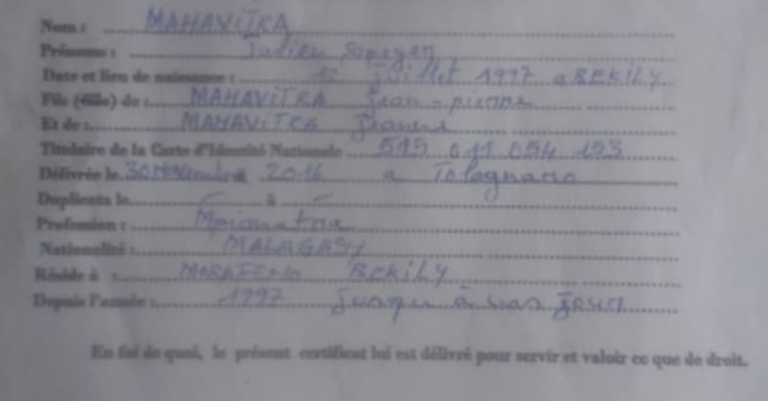 Nom : MAHAVITRA
Prénoms : Julien
Date et lieu de naissance : 12 Juillet 1997 a BEKILY
Fils (fille) de : MAHAVITRA Jean-pierre
Et de : MAHAVITRA
Titulaire de la Carte d'Identité Nationale 515 011 054 193
Délivrée le 30 Novembre 2016 a Tolagnaro
Duplicata le - à -
Profession :
Nationalité : MALAGASY
Réside à : MORAFENO BEKILY
Depuis l'année : 1997 Jusqu'à nos Jours
En foi de quoi, le présent certificat lui est délivré pour servir et valoir ce que de droit.